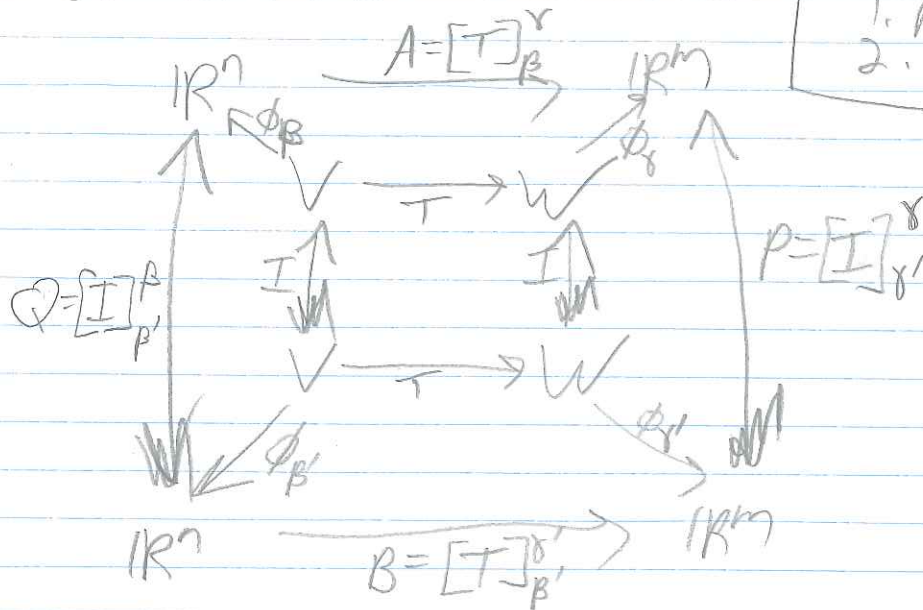 1.
2.
A = [T]_β^γ
ℝⁿ ℝᵐ
ϕ_β ϕ_γ
V T W
Q = [I]_β'^β I I P = [I]_γ'^γ
V T W
ϕ_β' ϕ_γ'
ℝⁿ ℝᵐ
B = [T]_β'^γ'